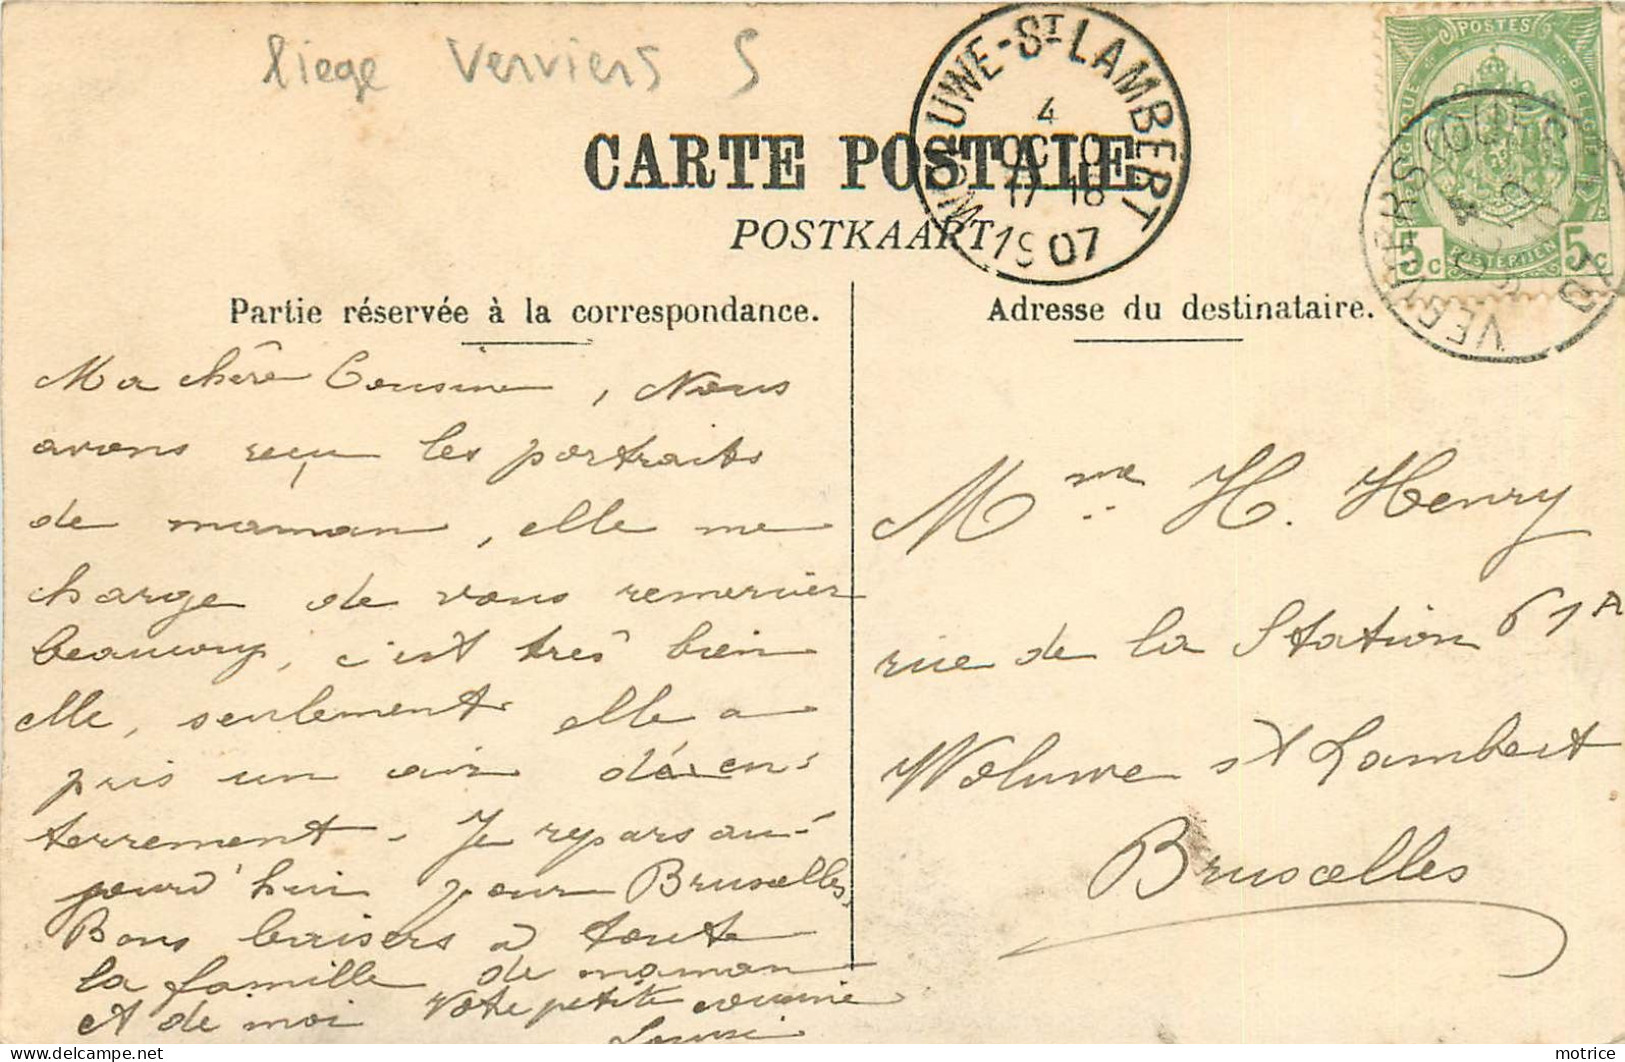 liege Verviers S
WOLUWE-ST LAMBERT
4
OCTO
17-18
1907
POSTES
BELGIQUE BELGIE
5c POSTERIJEN 5c
VERVIERS (OUEST)
4
OCTO
1907
CARTE POSTALE
POSTKAART
Partie réservée à la correspondance.
Ma chère Cousine, Nous
avons reçu les portraits
de maman, elle me
charge de vous remercier
beaucoup, c'est très bien
elle, seulement elle a
pris un air d'en-
terrement. Je repars au-
jourd'hui pour Bruxelles,
Bons baisers à toute
la famille de maman
et de moi Votre petite cousine
Adresse du destinataire.
Mme H. Henry
rue de la Station 61A
Woluwe st Lambert
Bruxelles
motrice